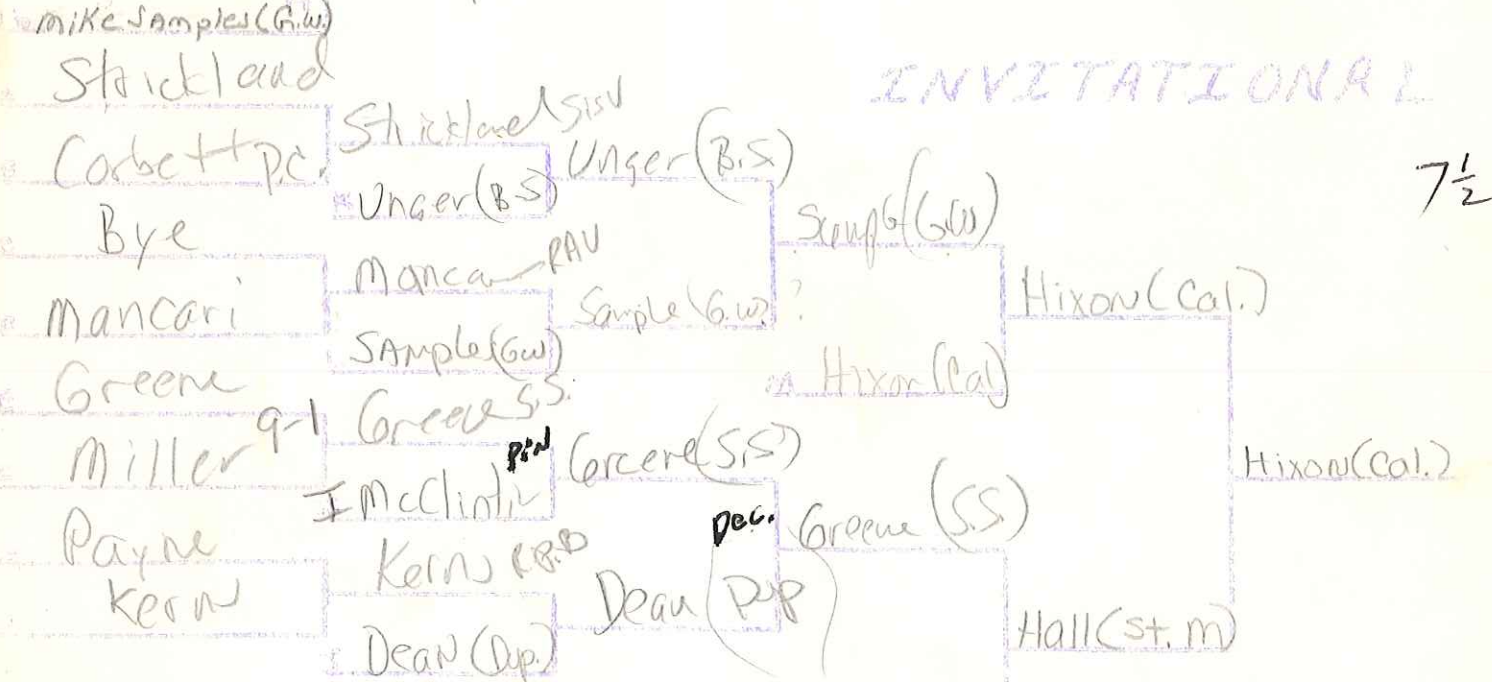 Mike Samples (G.W.)
Strickland
Corbett P.C.
Bye
Mancari
Greene
Miller 9-1
Payne
Kern
Strickland SISV
Unger (B.S)
Manca RAV
Samples (GW)
Greene S.S.
I McClintic Pin
Kern RBD
Dean (Dup.)
Unger (B.S)
Sample (G.W.) ?
Greene (S.S)
Dean (Dup Dec.
(G.W)
Hixon (Cal)
Greene (S.S.)
Hixon (Cal.)
Hall (St. M)
Hixon (Cal.)
INVITATIONAL
7 1/2